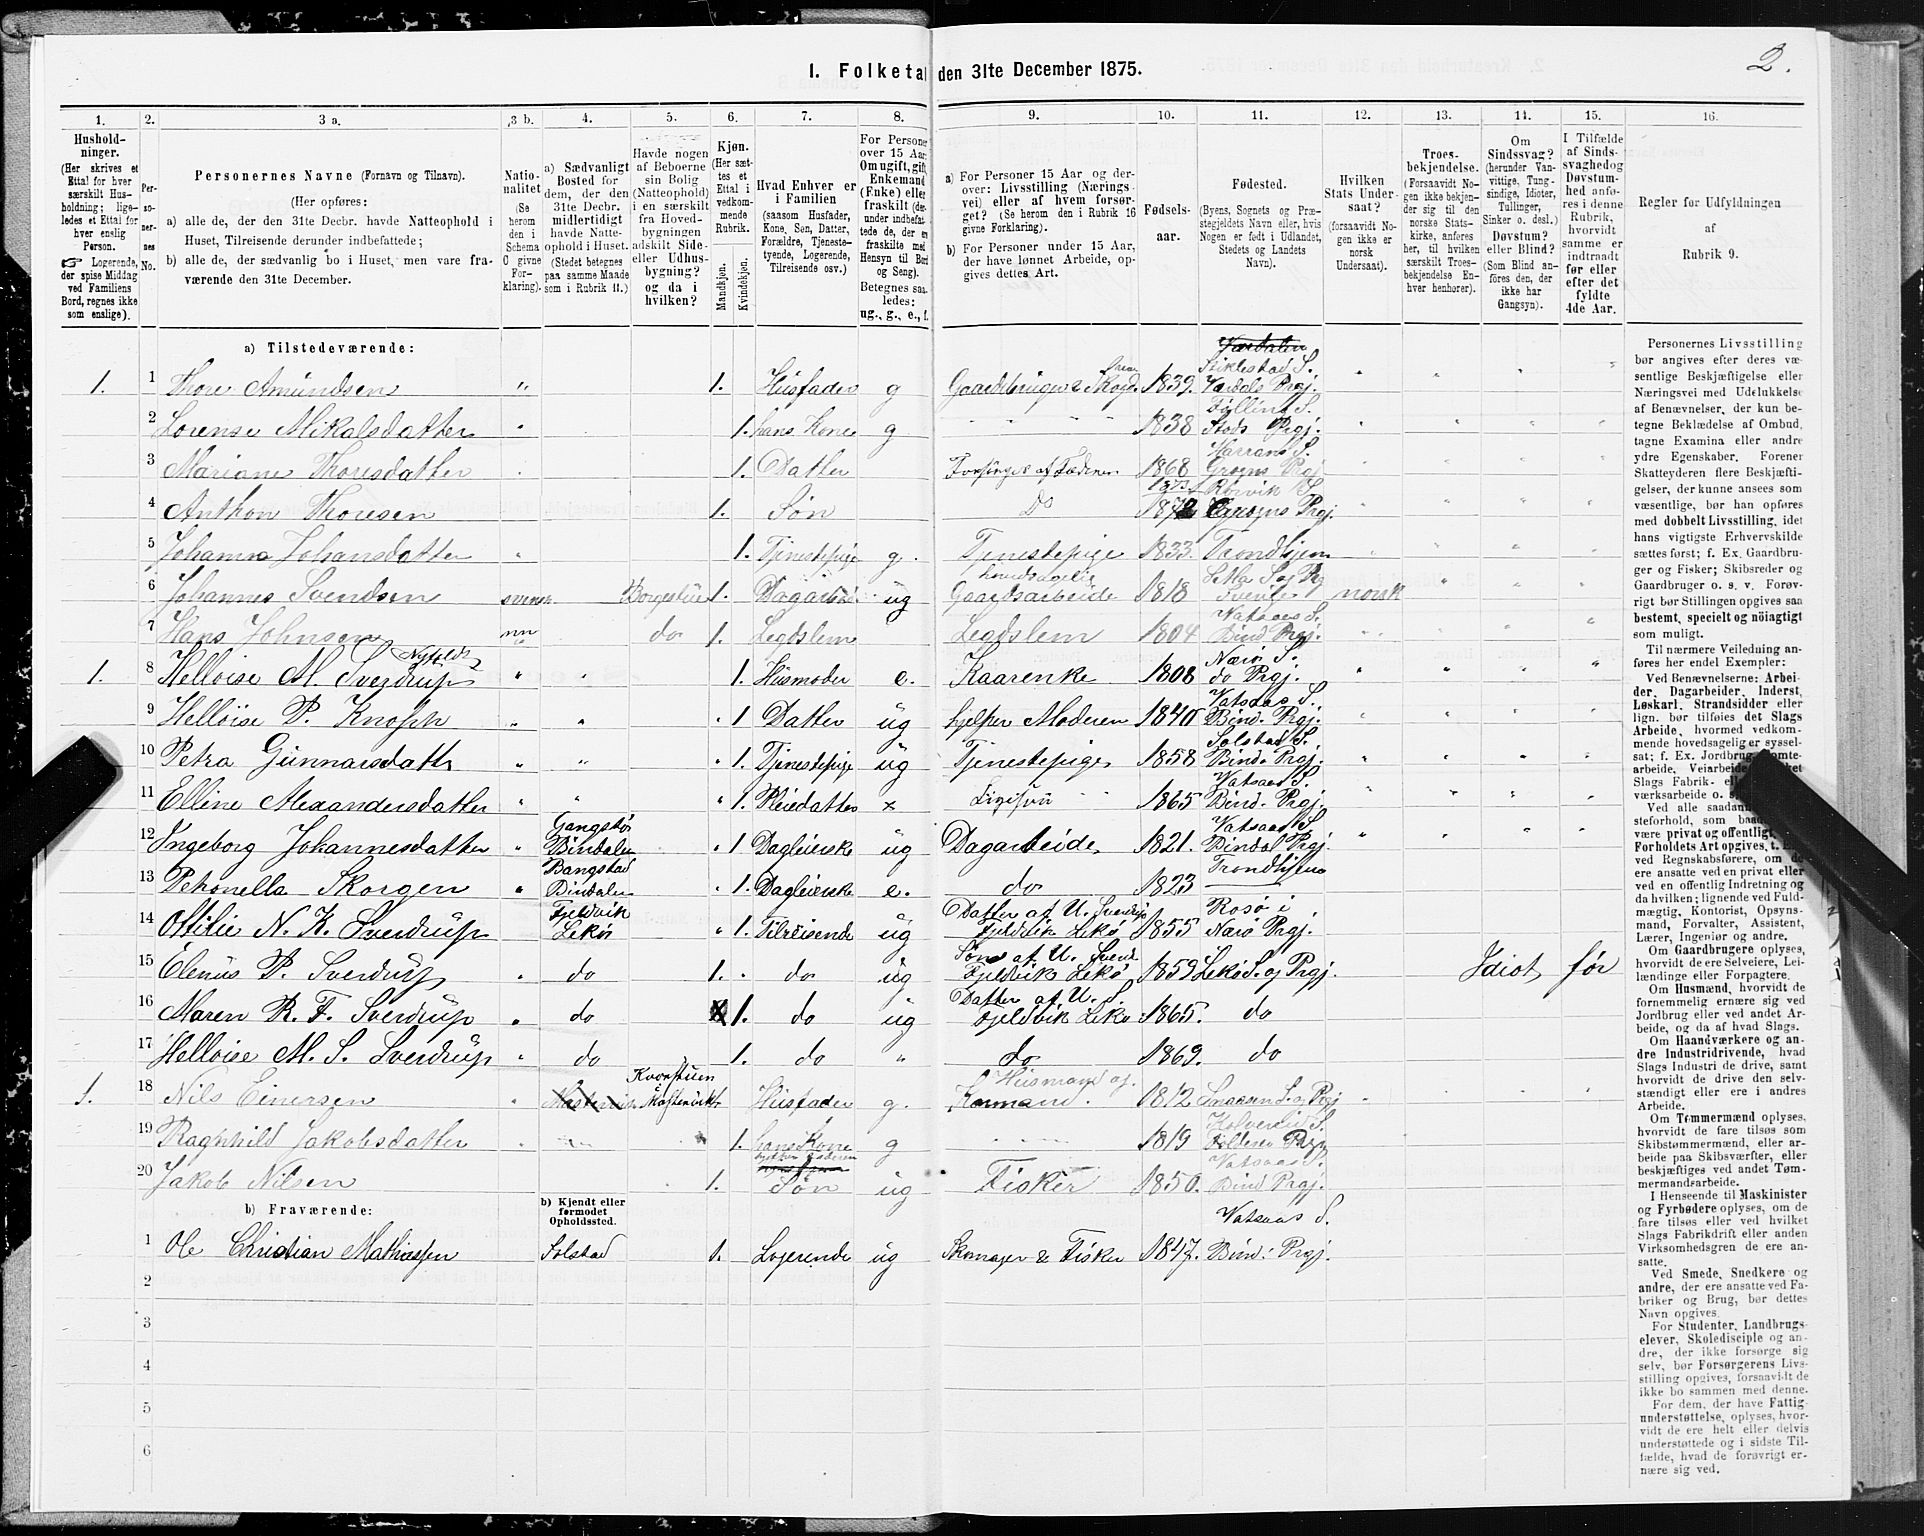 2.
1. Folketal den 31te December 1875.
1. 2. 3 a. 3 b. 4. 5. 6. 7. 8. 9. 10. 11. 12. 13. 14. 15. 16.
Hushold-
ninger.
(Her skrives et
Ettal for hver
særskilt Hus-
holdning; lige-
ledes et Ettal for
hver enslig
Person.
Logerende,
der spise Middag
ved Familiens
Bord, regnes ikke
som enslige).
Per-
so-
ner-
nes
No.
Personernes Navne (Fornavn og Tilnavn).
(Her opføres:
a) alle de, der den 31te Decbr. havde Natteophold i
Huset, Tilreisende derunder indbefattede;
b) alle de, der sædvanlig bo i Huset, men vare fra-
værende den 31te December.
Natio-
nalitet
(Se
herom
den i
Schema
C givne
For-
klaring).
a) Sædvanligt
Bosted for
dem, der den
31te Decbr.
midlertidigt
havde Natte-
ophold i Huset.
(Stedet betegnes
paa samme Maade
som i Rubrik 11.)
Havde nogen
af Beboerne
sin Bolig
(Natteophold)
i en særskilt
fra Hoved-
bygningen
adskilt Side-
eller Udhus-
bygning?
og da i
hvilken?
Kjøn.
(Her sæt-
tes et
Ettal i
vedkom-
mende
Rubrik.
Mandkjøn.
Kvindekjøn.
Hvad Enhver er
i Familien
(saasom Husfader,
Kone, Søn, Datter,
Forældre, Tjeneste-
tyende, Logerende,
Tilreisende osv.)
For Personer
over 15 Aar:
Om ugift, gift,
Enkemand
(Enke) eller
fraskilt (der-
under indbefat-
tede de, der er
fraskilte med
Hensyn til Bord
og Seng).
Betegnes saa-
ledes:
ug., g., e., f.
a) For Personer 15 Aar og der-
over: Livsstilling (Nærings-
vei) eller af hvem forsør-
get? (Se herom den i Rubrik 16
givne Forklaring).
b) For Personer under 15 Aar,
der have lønnet Arbeide, op-
gives dettes Art.
Fødsels-
aar.
Fødested.
(Byens, Sognets og Præ-
stegjeldets Navn eller, hvis
Nogen er født i Udlandet,
Stedets og Landets
Navn).
Hvilken
Stats Under-
saat?
(forsaavidt No-
gen ikke er
norsk
Undersaat).
Troes-
bekjendelse.
(Forsaavidt No-
gen ikke bekjen-
der sig til den
norske Stats-
kirke, anføres
her, til hvilken
særskilt Troes-
bekjendelse En-
hver henhører).
Om
Sindssvag?
(herunder Van-
vittige, Tung-
sindige, Idioter,
Tullinger,
Sinker o. desl.)
Døvstum?
eller Blind?
(Som Blind an-
føres den, der
ikke har
Gangsyn).
I Tilfælde
af Sinds-
svaghed og
Døvstum-
hed anfø-
res i denne
Rubrik,
hvorvidt
samme er
indtraadt
før eller
efter det
fyldte
4de Aar.
Regler for Udfyldningen
af
Rubrik 9.
a) Tilstedeværende:
1. 1 Thore Amundsen " 1. Husfader g Gaardbruger & 1839. Værdalen Stiklestad S. Værdals Prgj.
2 Lorense Mikalsdatter " 1. hans Kone g 1838 S. Stods Prgj.
3 Mariane Thoresdatter 1. Datter Forsørges af Faderen 1868 Harrans S. Grogns Prgj.
4 Anthon Thoresen 1. Søn Do 1873 Rörvik S. Prgj.
5 Johanna Johansdatter " 1. Tjenestepige g. Tjenestepige 1833. Trondhjem
6 Johannes Svendsen svensk Borgestue 1. Dagarbeid ug hovedsagelig Gaardsarbeide 1818 Sverige norsk
7 Hans Johnsen do 1. Legdslem Legdslem 1804 Vatsaas S. Bind. Prgj.
1. 8 Helloise M. Sverdrup " " 1. Husmoder e. Kaarenke 1808 Nærö S. do Prgj.
9 Helloise P. Knoph " " 1 Datter ug hjelper Moderen 1840 Vatsaas S. Bind. Prgj.
10 Petra Gunnarsdattr " " 1. Tjenestepige ug Tjenestepige 1858 Solstad S. Bind. Prgj.
11 Elline Alexandersdatter " " 1. Pleiedatter x 1865 Vatsaas S. Bind. Prgj.
12 Ingeborg Johannesdatter Gangstö Bindalen 1. Dagleierske ug Dagarbeide 1821. Vatsaas S. Bindal Prgj.
13 Petronella Skorgen Bangstad Bindalen 1. Dagleierske e. do 1823 Trondhjem
14 Ottilie N. K. Sverdrup Fjeldvik Lekö 1. Tilreisende ug Datter af U. Sverdrup Fjeldvik Lekö 1855 Rosö i Nærö Prgj.
15 Elenus P. Sverdrup do 1. do ug Søn af U. Sverd. Fjeldvik Lekö 1859 Lekö S. og Prgj. Idiot før
16 Maren R. F. Sverdrup do 1. do ug Datter af U. S. Fjeldvik Lekö 1865. do
17 Helloise M. S. Sverdrup do 1. do " do 1869. do
1. 18 Nils Einersen Husfader g. Husmand 1812 Snaasen S. og Prgj
19 Ragnhild Jakobsdatter 1. hans Kone g 1819 Kolvereid S. Prgj.
20 Jakob Nilsen 1. Søn ug Fisker 1850. Vatsaas S. Bind Prgj.
b) Fraværende:
b) Kjendt eller
formodet
Opholdssted.
1 Ole Christian Mathiassen Solstad 1. Logerende ug Skomager & Fisker 1847. Vatsaas S. Bind. Prgj.
2
3
4
5
6
Personernes Livsstilling
bør angives efter deres væ-
sentlige Beskjæftigelse eller
Næringsvei med Udelukkelse
af Benævnelser, der kun be-
tegne Beklædelse af Ombud,
tagne Examina eller andre
ydre Egenskaber. Forener
Skatteyderen flere Beskjæfti-
gelser, der kunne ansees som
væsentlige, bør han opføres
med dobbelt Livsstilling, idet
hans vigtigste Erhvervskilde
sættes først; f. Ex. Gaardbru-
ger og Fisker; Skibsreder og
Gaardbruger o. s. v. Forøv-
rigt bør Stillingen opgives saa
bestemt, specielt og nöiagtigt
som muligt.
Til nærmere Veiledning an-
føres her endel Exempler:
Ved Benævnelserne: Arbei-
der, Dagarbeider, Inderst,
Løskarl, Strandsidder eller
lign. bør tilføies det Slags
Arbeide, hvormed vedkom-
mende hovedsagelig er syssel-
sat; f. Ex. Jordbrug,
arbeide, Veiarbeide,
Slags Fabrik- el
værksarbeide o. s.
Ved alle saadan
steforhold, som baa
være privat og offentligt,
Forholdets Art opgives, t. E
ved Regnskabsførere, om de
ere ansatte ved en privat eller
ved en offentlig Indretning og
da hvilken; lignende ved Fuld-
mægtig, Kontorist, Opsyns-
mand, Forvalter, Assistent,
Lærer, Ingeniør og andre.
Om Gaardbrugere oplyses,
hvorvidt de ere Selveiere, Lei-
lændinge eller Forpagtere.
Om Husmænd, hvorvidt de
fornemmelig ernære sig ved
Jordbrug eller ved andet Ar-
beide, og da af hvad Slags.
Om Haandværkere og an-
dre Industridrivende, hvad
Slags Industri de drive, samt
hvorvidt de drive den selv-
stændigt eller ere i andres
Arbeide.
Om Tømmermænd oplyses,
hvorvidt de fare tilsøs som
Skibstømmermænd, eller ar-
beide paa Skibsværfter, eller
beskjæftiges ved andet Tøm-
mermandsarbeide.
I Henseende til Maskinister
og Fyrbødere oplyses, om de
fare tilsøs eller ved hvilket
Slags Fabrikdrift eller anden
Virksomhedsgren de ere an-
satte.
Ved Smede, Snedkere og
andre, der ere ansatte ved Fa-
briker og Brug, bør dettes
Navn opgives.
For Studenter, Landbrugs-
elever, Skoledisciple og an-
dre, der ikke forsørge sig
selv, bør Forsørgerens Livs-
stilling opgives, forsaavidt de
ikke bo sammen med denne.
For dem, der have Fattig-
understøttelse, oplyses, hvor-
vidt de ere helt eller delvis
understøttede og i sidste Til-
fælde, hvad de forøvrigt er-
nære sig ved.